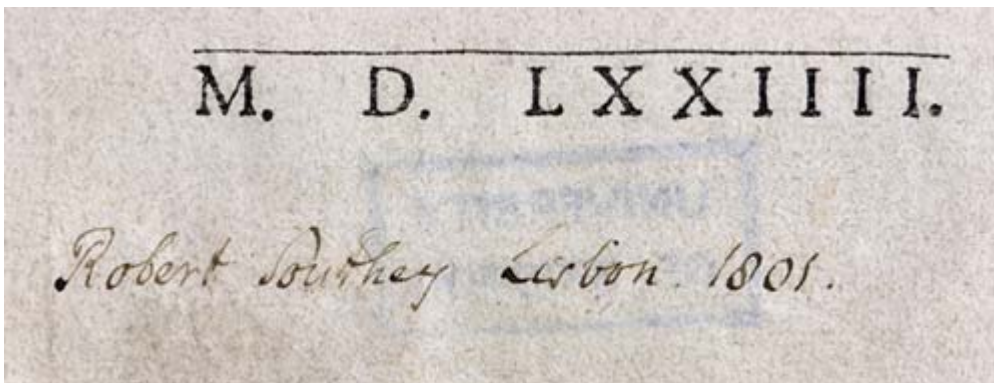 M. D. LXXIIII.
Robert Southey Lisbon. 1801.